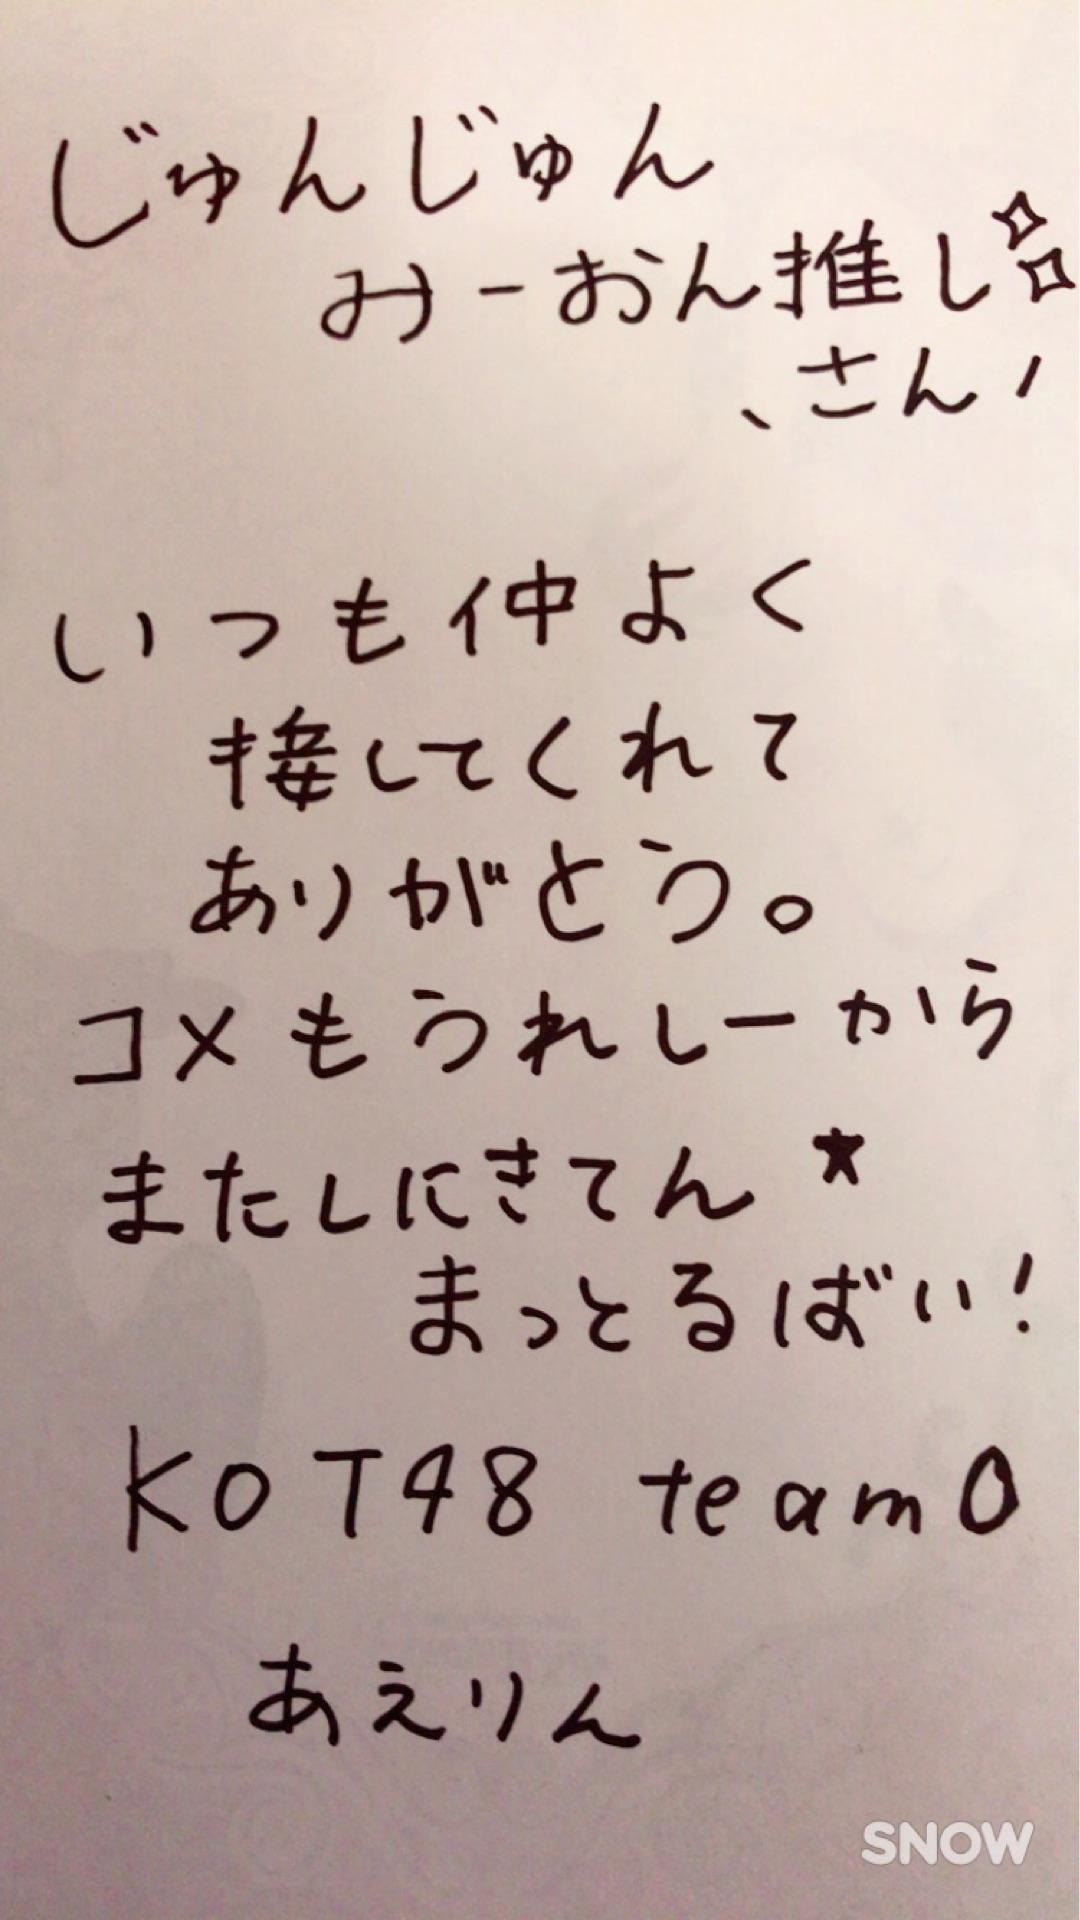 じゅんじゅん
みーおん推し✧✧
、さんノ
いつも仲よく
接してくれて
ありがとう。
コメもうれしーから
またしにきてん★
まっとるばい!
KOT48 teamO
あえりん
SNOW